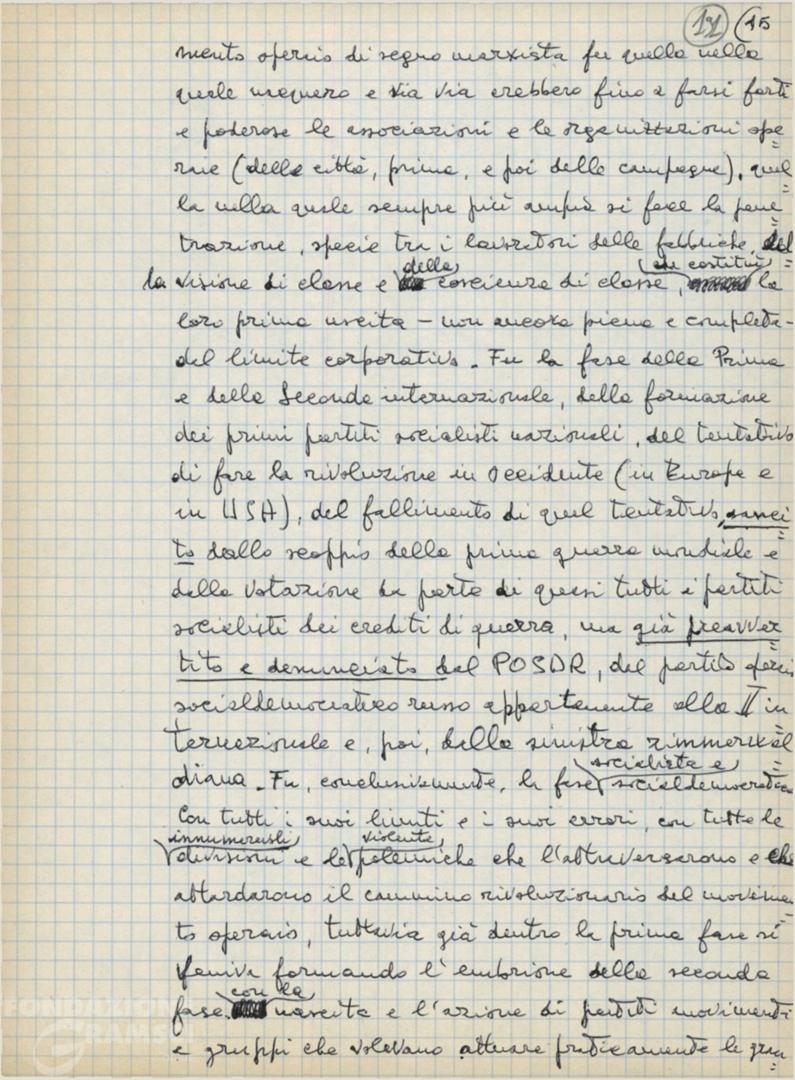 14 (15
mento operaio di segno marxista fu quella nella
quale nacquero e via via crebbero fino a farsi forti
e poderose le associazioni e le organizzazioni ope=
raie (delle città, prima, e poi delle campagne), quel=
la nella quale sempre più ampia si fece la pene=
trazione, specie tra i lavoratori delle fabbriche, del=
la visione di classe e della coscienza di classe, che costituì la
loro prima uscita – non ancora piena e completa –
dal limite corporativo. Fu la fase della Prima
e della Seconda internazionale, della formazione
dei primi partiti socialisti nazionali, del tentativo
di fare la rivoluzione in Occidente (in Europa e
in USA), del fallimento di quel tentativo, sanci=
to dallo scoppio della prima guerra mondiale e
dalla votazione da parte di quasi tutti i partiti
socialisti dei crediti di guerra, ma già preavver=
tito e denunciato dal POSDR, dal partito operaio
socialdemocratico russo appartenente alla II in=
ternazionale e, poi, dalla sinistra zimmerwal=
diana. Fu, conclusivamente, la fase socialista e socialdemocratica.
Con tutti i suoi limiti e i suoi errori, con tutte le
innumerevoli divisioni e le violente polemiche che l'attraversarono e che
attardarono il cammino rivoluzionario del movimen=
to operaio, tuttavia già dentro la prima fase si
veniva formando l'embrione della seconda
fase con la nascita e l'azione di partiti movimenti
e gruppi che volevano attuare praticamente le gran=
FONDAZIONE
GRAMSCI